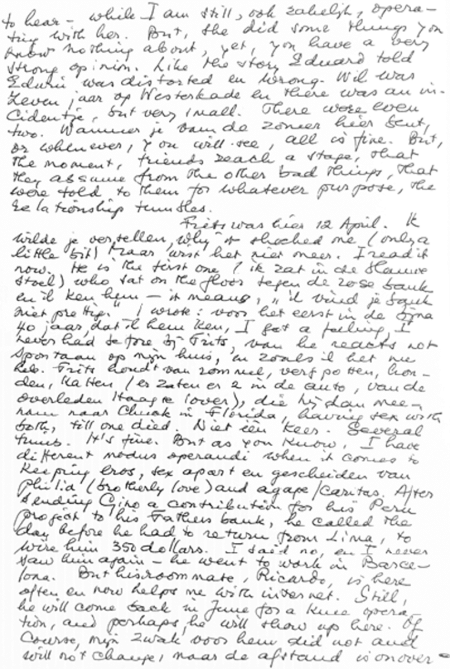 to hear - while I am still, ook zakelijk, opera-
ting with her. But, she did some things you
know nothing about, yet, you have a very
strong opinion. Like the story Eduard told
Edwin was distorted en wrong. Wil was
zeven jaar op Westerkade en there was an in-
cidentje, but very small. There were even
two. Wanneer je van de zomer hier bent,
or whenever, you will see, all is fine. But,
the moment, friends reach a stage, that
they assume from the other bad things, that
were told to them for whatever purpose, the
relationship tumbles.
Frits was hier 12 April. Ik
wilde je vertellen, why it shocked me (only a
little bit) maar wist het niet meer. I read it
now. He is the first one (ik zat in de blauwe
stoel) who sat on the floor tegen de rose bank
en ik ken hem - it means, "ik vind je bank
niet prettig" - I wrote: voor het eerst in de bijna
40 jaar, dat ik hem ken, I got a feeling, I
never had before bij Frits, van he reacts not
spontaan op mijn huis, en zoals ik het nu
heb. Frits houdt van rommel, verfpotten, hon-
den, katten (er zaten er 2 in de auto, van de
overleden Haagse lover), die hij dan mee-
nam naar Chuck in Florida, having sex with
both, till one died. Niet één keer. Several
times. It's fine. But as you know, I have
different modus operandi when it comes to
keeping eros, sex apart en gescheiden van
philia (brotherly love) and agape/caritas. After
sending Gino a contribution for his Peru
project to his Fathers bank, he called the
day before he had to return from Lima, to
wire him 350 dollars. I said no, en I never
saw him again - he went to work in Barce-
lona. But his roommate, Ricardo, is here
often en now helps me with internet. Still,
he will come back in June for a knee opera-
tion, and perhaps, he will show up here. Of
course, mijn zwak voor hem did not and
will not change, maar de afstand is onover-